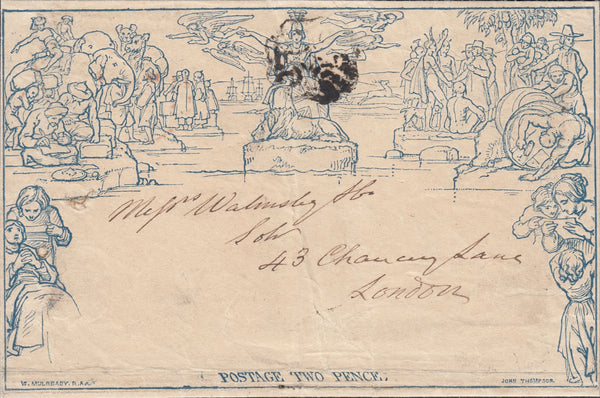 Messrs Walmsley & Co
Solrs
43 Chancery Lane
London
POSTAGE TWO PENCE.
W. MULREADY. R.A.
JOHN THOMPSON.